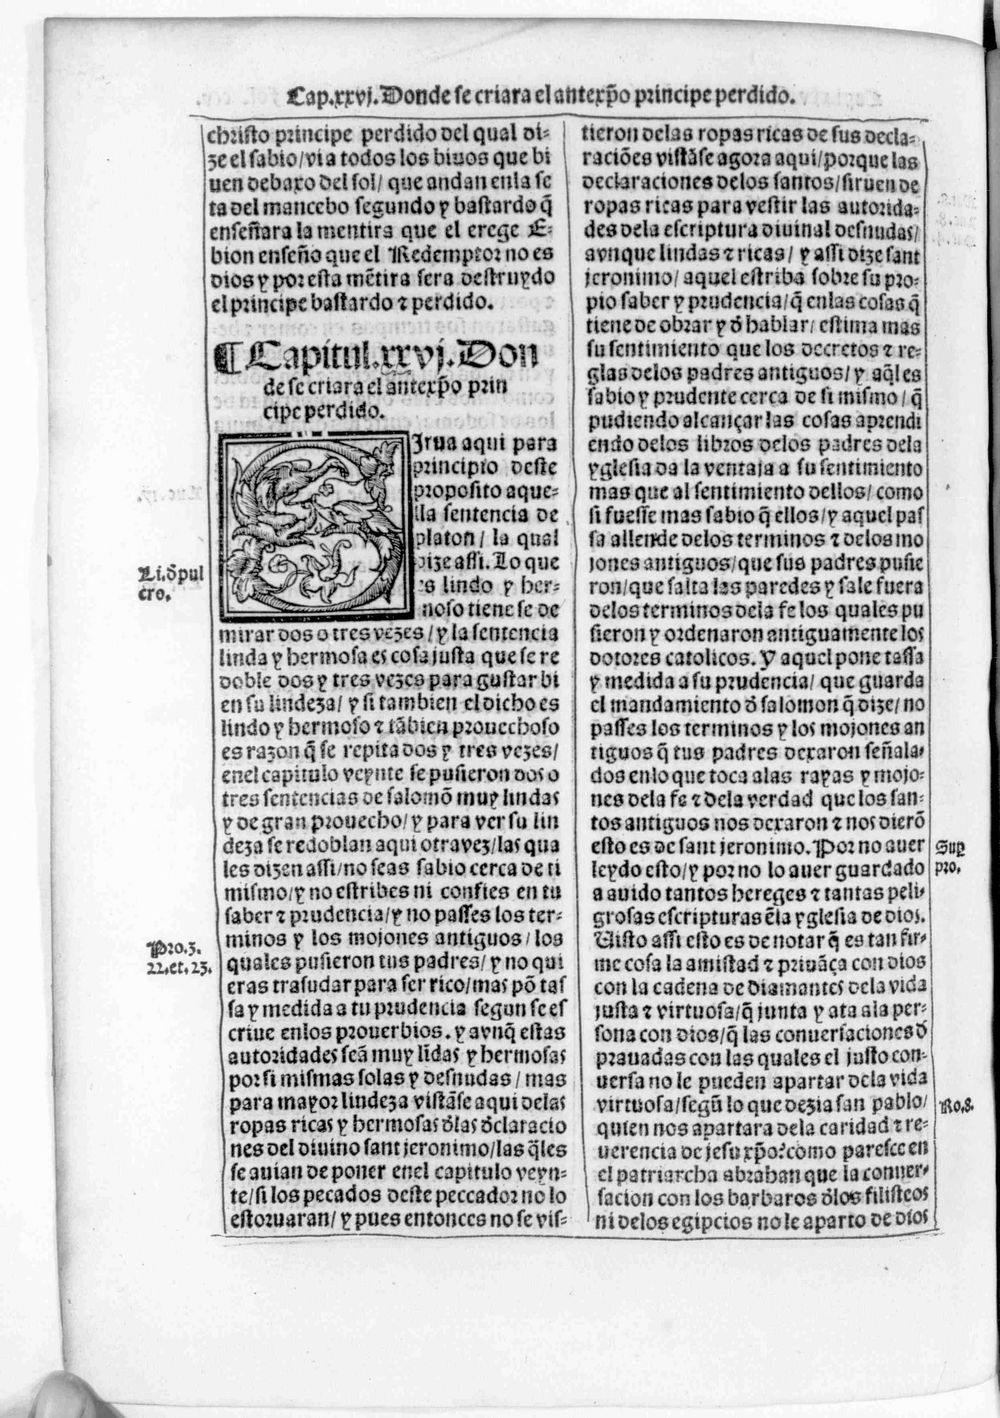 Cap.xxvj. Donde se criara el antexp̃o principe perdido.
christo principe perdido del qual di-
ze el sabio/ vi a todos los biuos que bi
uen debaxo del sol/ que andan enla se
ta del mancebo segundo y bastardo q̃
enseñara la mentira que el erege E-
bion enseño que el Redemptor no es
dios y por esta mẽtira sera destruydo
el principe bastardo ⁊ perdido.
¶ Capitul.xxvj. Don
de se criara el antexp̃o prin
cipe perdido.
SIrua aqui para
principio deste
proposito aque-
lla sentencia de
platon/ la qual
dize assi. Lo que
es lindo y her-
moso tiene se de
Li. d̃ pul
cro.
mirar dos o tres vezes/ y la sentencia
linda y hermosa es cosa justa que se re
doble dos y tres vezes para gustar bi
en su lindeza/ y si tambien el dicho es
lindo y hermoso ⁊ tãbien prouechoso
es razon q̃ se repita dos y tres vezes/
enel capitulo veynte se pusieron dos o
tres sentencias de salomõ muy lindas
y de gran prouecho/ y para ver su lin
deza se redoblan aqui otra vez/ las qua
les dizen assi/ no seas sabio cerca de ti
mismo/ y no estribes ni confies en tu
saber ⁊ prudencia/ y no passes los ter-
minos y los mojones antiguos/ los
quales pusieron tus padres/ y no qui
eras trasudar para ser rico/ mas põ tas
sa y medida a tu prudencia segun se es
criue enlos prouerbios. y avnq̃ estas
autoridades seã muy lĩdas y hermosas
por si mismas solas y desnudas/ mas
para mayor lindeza vistãse aqui delas
ropas ricas y hermosas d̃las d̃claracio
nes del diuino sant jeronimo/ las q̃les
se auian de poner enel capitulo veyn-
te/ si los pecados deste peccador no lo
estoruaran/ y pues entonces no se vis-
Pro.3.
22.et.23.
tieron delas ropas ricas de sus decla-
raciões vistãse agora aqui/ porque las
declaraciones delos santos/ siruen de
ropas ricas para vestir las autorida-
des dela escriptura diuinal desnudas/
avnque lindas ⁊ ricas/ y assi dize sant
jeronimo/ aquel estriba sobre su pro-
pio saber y prudencia/ q̃ enlas cosas q̃
tiene de obrar y d̃ hablar/ estima mas
su sentimiento que los decretos ⁊ re-
glas delos padres antiguos/ y aq̃l es
sabio y prudente cerca de si mismo/ q̃
pudiendo alcançar las cosas aprendi
endo delos libros delos padres dela
yglesia da la ventaja a su sentimiento
mas que al sentimiento dellos/ como
si fuesse mas sabio q̃ ellos/ y aquel pas
sa allende delos terminos ⁊ delos mo
jones antiguos/ que sus padres pusie
ron/ que salta las paredes y sale fuera
delos terminos dela fe los quales pu
sieron y ordenaron antiguamente los
dotores catolicos. Y aquel pone tassa
y medida a su prudencia/ que guarda
el mandamiento d̃ salomon q̃ dize/ no
passes los terminos y los mojones an
tiguos q̃ tus padres dexaron señala-
dos enlo que toca alas rayas y mojo-
nes dela fe ⁊ dela verdad que los san-
tos antiguos nos dexaron ⁊ nos dierõ
esto es de sant jeronimo. Por no auer
leydo esto/ y por no lo auer guardado
a auido tantos hereges ⁊ tantas peli-
grosas escripturas ẽla yglesia de dios.
Uisto assi esto es de notar q̃ es tan fir-
me cosa la amistad ⁊ priuãça con dios
con la cadena de diamantes dela vida
justa ⁊ virtuosa/ q̃ junta y ata ala per-
sona con dios/ q̃ las conuersaciones d̃
prauadas con las quales el justo con-
uersa no le pueden apartar dela vida
virtuosa/ segũ lo que dezia san pablo/
quien nos apartara dela caridad ⁊ re-
uerencia de jesu xp̃o? como paresce en
el patriarcha abraban que la conuer-
sacion con los barbaros d̃los filisteos
ni delos egipcios no le aparto de dios
Sup
pro.
Ro.8.